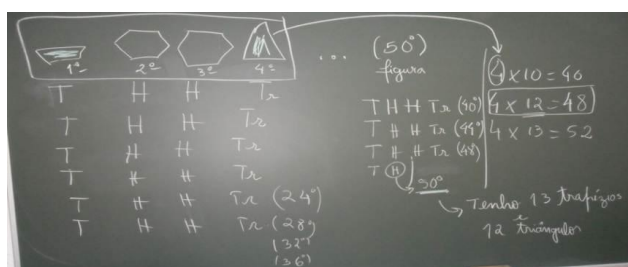 1º 2º 3º 4º ... (50º)
figura
T H H Tr
T H H Tr
T H H Tr
T H H Tr
T H H Tr (24º)
T H H Tr (28º)
(32º)
(36º)
T H H Tr (40º)
T H H Tr (44º)
T H H Tr (48)
T H
50º
4 x 10 = 40
4 x 12 = 48
4 x 13 = 52
Tenho 13 trapézios
e
12 triângulos